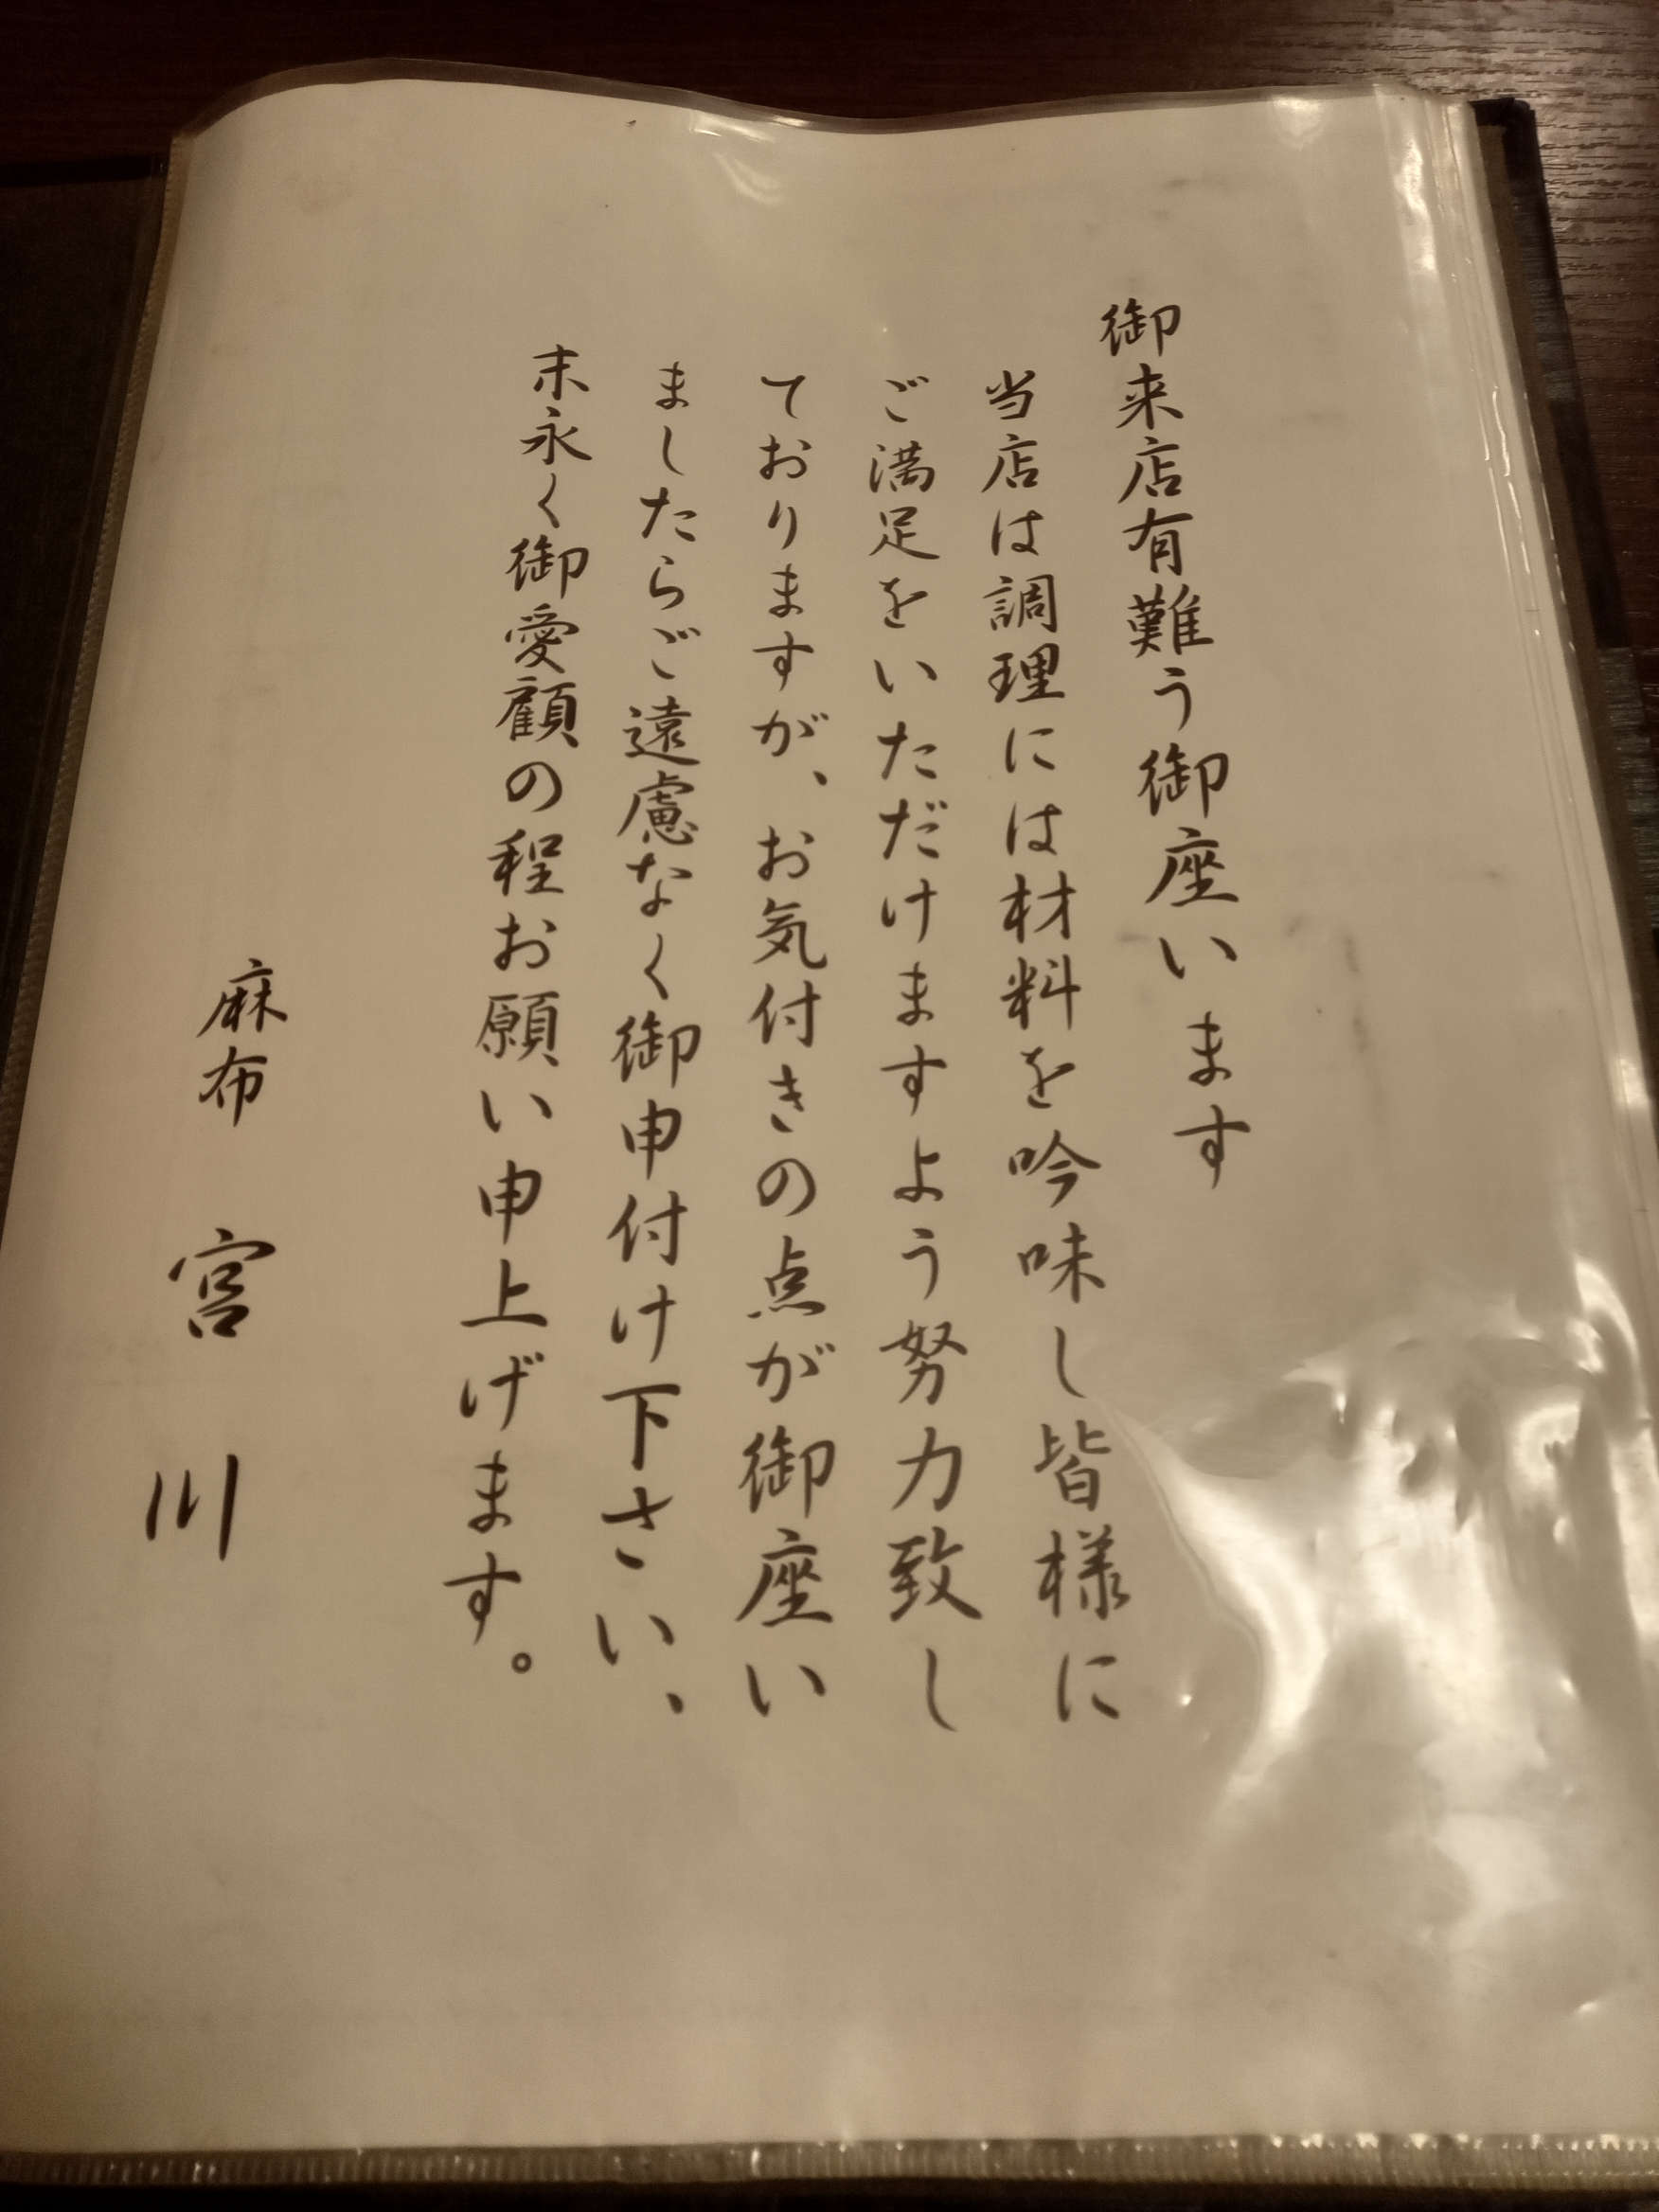 御来店有難う御座います
当店は調理には材料を吟味し皆様に
ご満足をいただけますよう努力致し
ておりますが、お気付きの点が御座い
ましたらご遠慮なく御申付け下さい、
末永く御愛顧の程お願い申上げます。
麻布 宮川